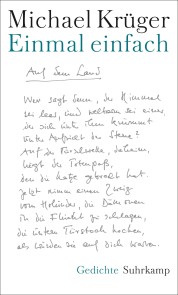 Michael Krüger
Einmal einfach
Auf dem Land
Wer sagt denn, der Himmel
sei leer, und weltarm sei einer,
der sich um ihn kümmert
unter Aufsicht der Sterne?
Auf der Türschwelle, daheim,
liegt der Totenpaß,
den die Katze gebracht hat.
Jetzt nimm einen Zweig
vom Holunder, die Dämonen
in die Flucht zu schlagen,
die unterm Türstock hocken,
als würden sie auf dich warten.
Gedichte Suhrkamp